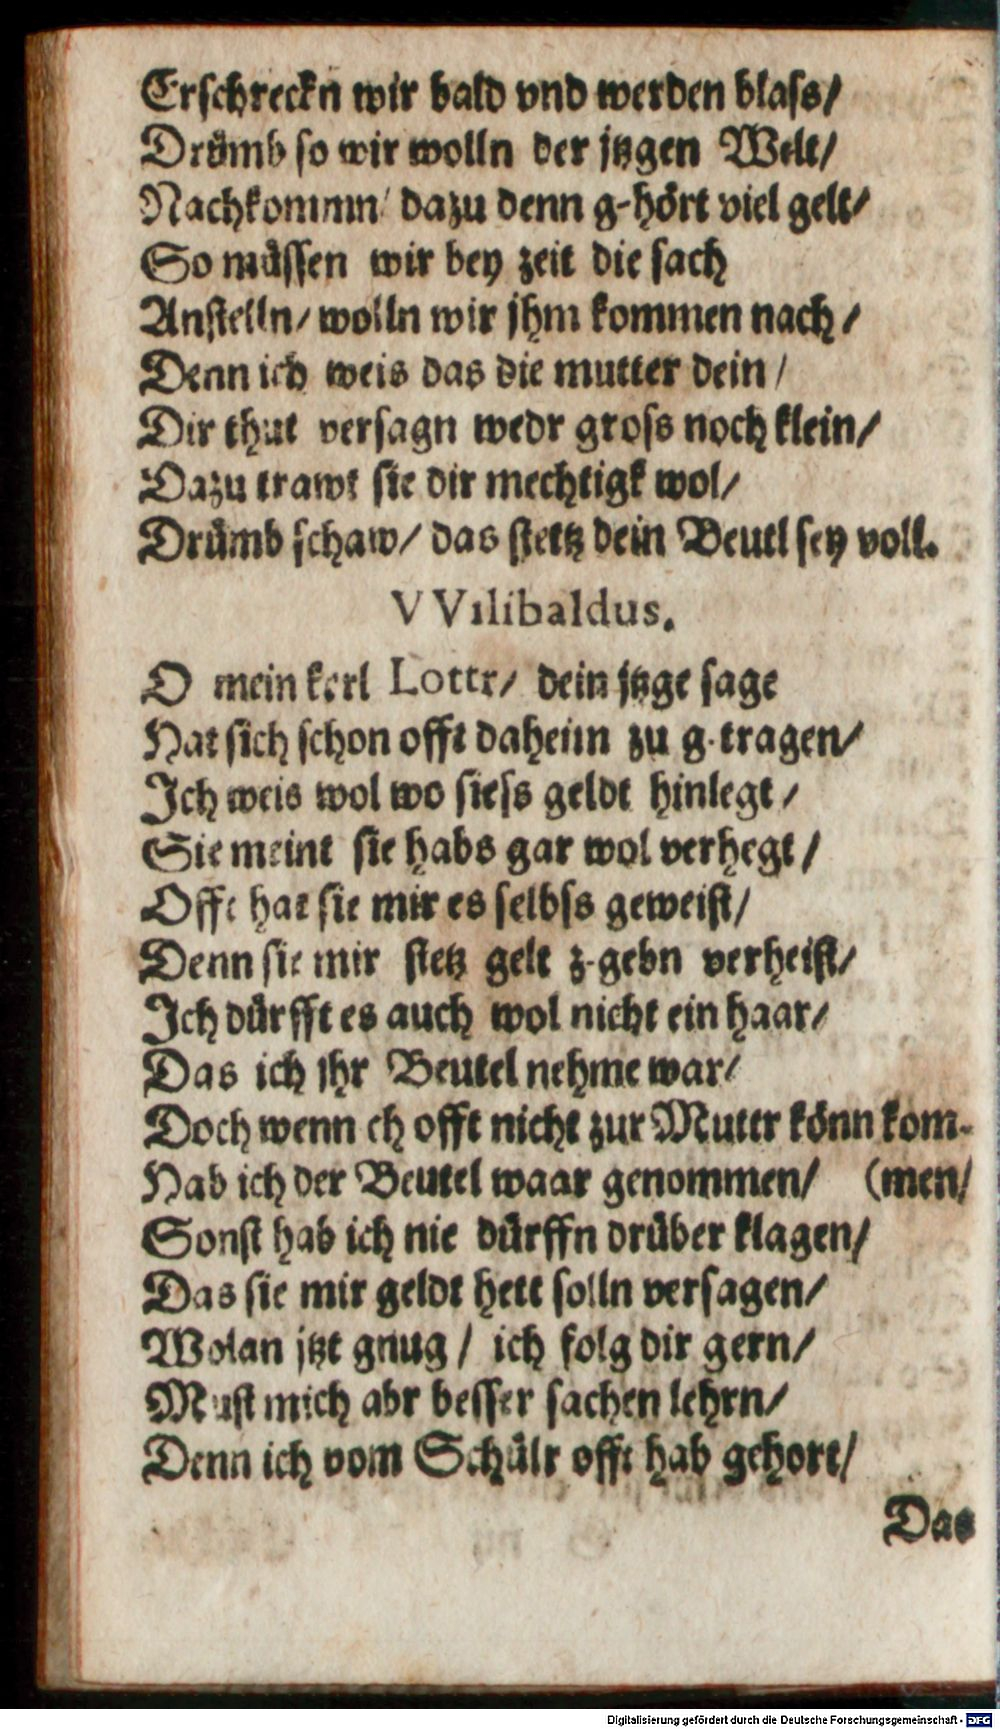 Erschreckn wir bald vnd werden blass/
Drümb so wir wolln der jtzgen Welt/
Nachkommn/ dazu denn g-hört viel gelt/
So müssen wir bey zeit die sach
Anstelln/ wolln wir jhm kommen nach/
Denn ich weis das die mutter dein/
Dir thut versagn wedr gross noch klein/
Dazu trawt sie dir mechtigk wol/
Drümb schaw/ das stetz dein Beutl sey voll.
VVilibaldus.
O mein kerl Lottr/ dein jtzge sage
Hat sich schon offt daheim zu g-tragen/
Ich weis wol wo siess geldt hinlegt/
Sie meint sie habs gar wol verhegt/
Offt hat sie mir es selbss geweist/
Denn sie mir stetz gelt z-gebn verheist/
Ich dürfft es auch wol nicht ein haar/
Das ich jhr Beutel nehme war/
Doch wenn ch offt nicht zur Muttr könn kom-
Hab ich der Beutel waar genommen/ (men/
Sonst hab ich nie dürffn drüber klagen/
Das sie mir geldt hett solln versagen/
Wolan jtzt gnug/ ich folg dir gern/
Must mich abr besser sachen lehrn/
Denn ich vom Schülr offt hab gehort/
Das
Digitalisierung gefördert durch die Deutsche Forschungsgemeinschaft - DFG